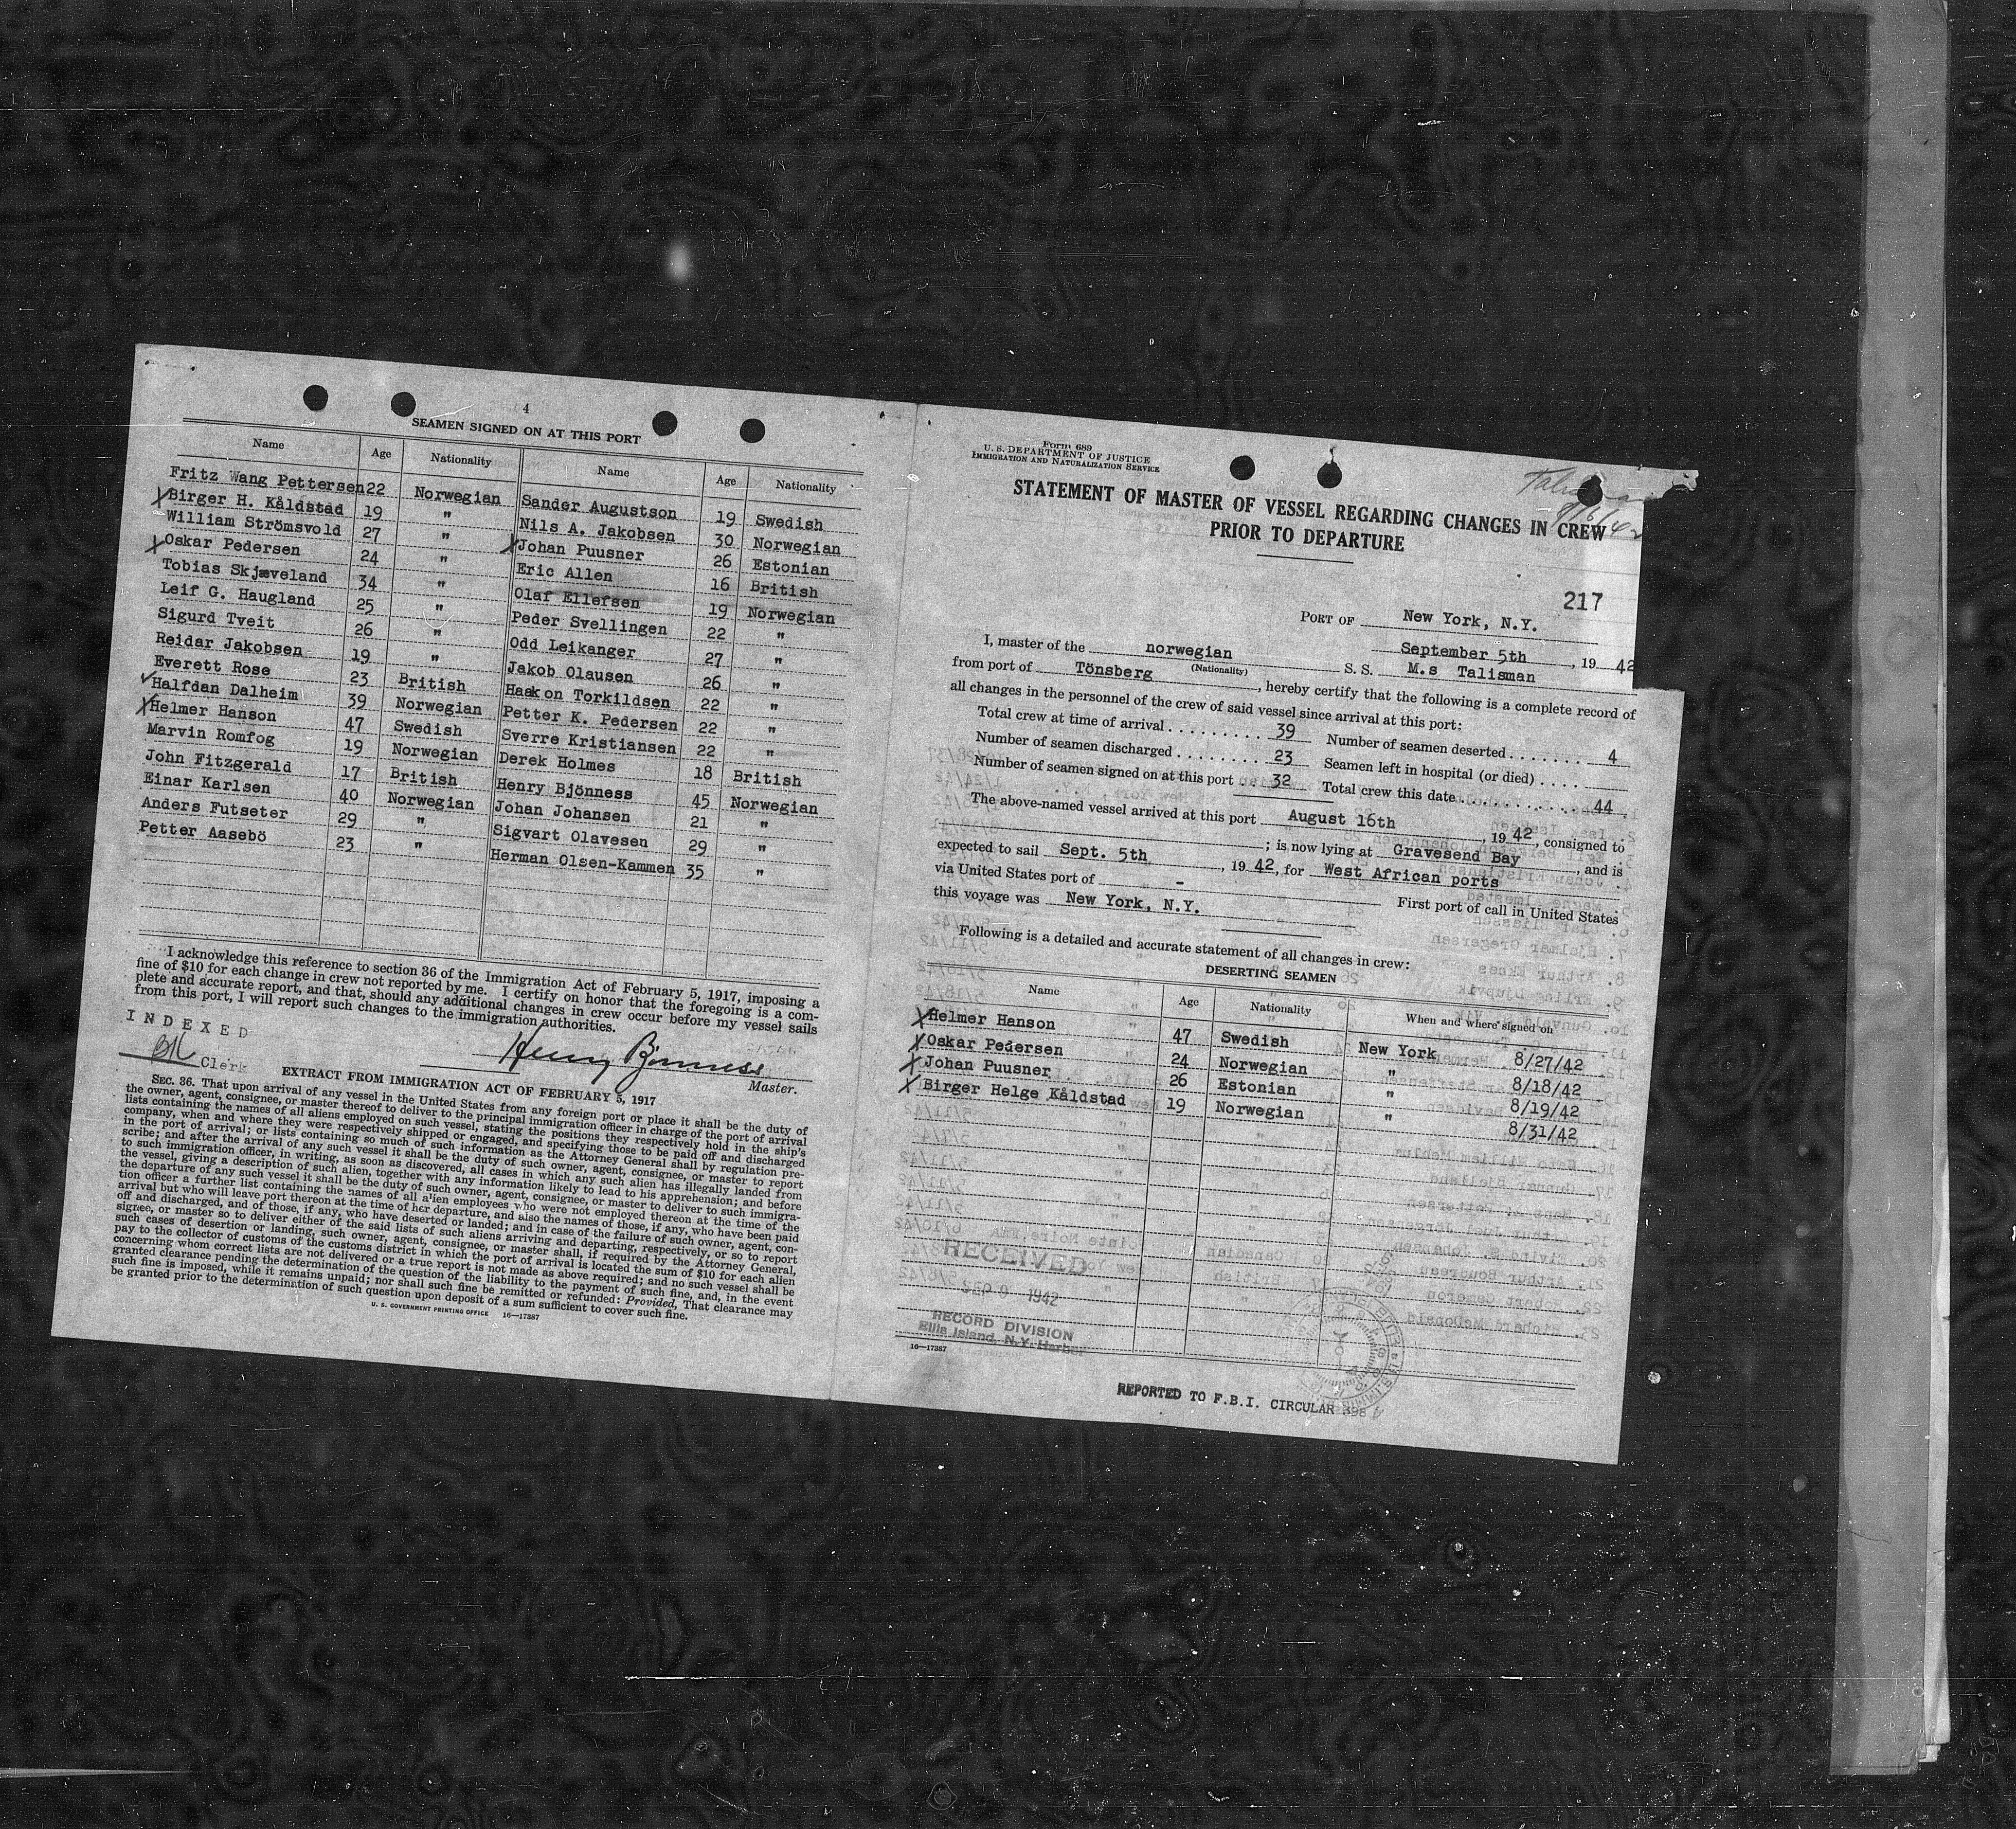 4
SEAMEN SIGNED ON AT THIS PORT
Name Age Nationality Name Age Nationality
Fritz Wang Pettersen 22 Norwegian Sander Augustson 19 Swedish
Birger H. Kåldstad 19 " Nils A. Jakobsen 30 Norwegian
William Strömsvold 27 " Johan Puusner 26 Estonian
Oskar Pedersen 24 " Eric Allen 16 British
Tobias Skjæveland 34 " Olaf Ellefsen 19 Norwegian
Leif G. Haugland 25 " Peder Svellingen 22 "
Sigurd Tveit 26 " Odd Leikanger 27 "
Reidar Jakobsen 19 " Jakob Olausen 26 "
Everett Rose 23 British Haakon Torkildsen 22 "
Halfdan Dalheim 39 Norwegian Petter K. Pedersen 22 "
Helmer Hanson 47 Swedish Sverre Kristiansen 22 "
Marvin Romfog 19 Norwegian Derek Holmes 18 British
John Fitzgerald 17 British Henry Bjönness 45 Norwegian
Einar Karlsen 40 Norwegian Johan Johansen 21 "
Anders Futseter 29 " Sigvart Olavesen 29 "
Petter Aasebö 23 " Herman Olsen-Kammen 35 "
I acknowledge this reference to section 36 of the Immigration Act of February 5, 1917, imposing a
fine of $10 for each change in crew not reported by me. I certify on honor that the foregoing is a com-
plete and accurate report, and that, should any additional changes in crew occur before my vessel sails
from this port, I will report such changes to the immigration authorities.
INDEXED
Clerk
Henry Bjönness
Master.
EXTRACT FROM IMMIGRATION ACT OF FEBRUARY 5, 1917
SEC. 36. That upon arrival of any vessel in the United States from any foreign port or place it shall be the duty of
the owner, agent, consignee, or master thereof to deliver to the principal immigration officer in charge of the port of arrival
lists containing the names of all aliens employed on such vessel, stating the positions they respectively hold in the ship's
company, when and where they were respectively shipped or engaged, and specifying those to be paid off and discharged
in the port of arrival; or lists containing so much of such information as the Attorney General shall by regulation pre-
scribe; and after the arrival of any such vessel it shall be the duty of such owner, agent, consignee, or master to report
to such immigration officer, in writing, as soon as discovered, all cases in which any such alien has illegally landed from
the vessel, giving a description of such alien, together with any information likely to lead to his apprehension; and before
the departure of any such vessel it shall be the duty of such owner, agent, consignee, or master to deliver to such immigra-
tion officer a further list containing the names of all alien employees who were not employed thereon at the time of the
arrival but who will leave port thereon at the time of her departure, and also the names of those, if any, who have been paid
off and discharged, and of those, if any, who have deserted or landed; and in case of the failure of such owner, agent, con-
signee, or master so to deliver either of the said lists of such aliens arriving and departing, respectively, or so to report
such cases of desertion or landing, such owner, agent, consignee, or master shall, if required by the Attorney General,
pay to the collector of customs of the customs district in which the port of arrival is located the sum of $10 for each alien
concerning whom correct lists are not delivered or a true report is not made as above required; and no such vessel shall be
granted clearance pending the determination of the question of the liability to the payment of such fine, and, in the event
such fine is imposed, while it remains unpaid; nor shall such fine be remitted or refunded: Provided, That clearance may
be granted prior to the determination of such question upon deposit of a sum sufficient to cover such fine.
U. S. GOVERNMENT PRINTING OFFICE 16—17387
Form 689
U. S. DEPARTMENT OF JUSTICE
IMMIGRATION AND NATURALIZATION SERVICE
STATEMENT OF MASTER OF VESSEL REGARDING CHANGES IN CREW
PRIOR TO DEPARTURE
217
PORT OF New York, N.Y.
September 5th, 1942
I, master of the norwegian S. S. M.s Talisman
(Nationality)
from port of Tönsberg, hereby certify that the following is a complete record of
all changes in the personnel of the crew of said vessel since arrival at this port:
Total crew at time of arrival 39 Number of seamen deserted 4
Number of seamen discharged 23 Seamen left in hospital (or died)
Number of seamen signed on at this port 32 Total crew this date 44
The above-named vessel arrived at this port August 16th, 1942, consigned to
; is now lying at Gravesend Bay, and is
expected to sail Sept. 5th, 1942, for West African ports
via United States port of - First port of call in United States
this voyage was New York, N.Y.
Following is a detailed and accurate statement of all changes in crew:
DESERTING SEAMEN
Name Age Nationality When and where signed on
Helmer Hanson 47 Swedish New York 8/27/42
Oskar Pedersen 24 Norwegian " 8/18/42
Johan Puusner 26 Estonian " 8/19/42
Birger Helge Kåldstad 19 Norwegian " 8/31/42
RECEIVED
SEP 9 1942
RECORD DIVISION
Ellis Island, N.Y. Harbor
16—17387
REPORTED TO F.B.I. CIRCULAR 398